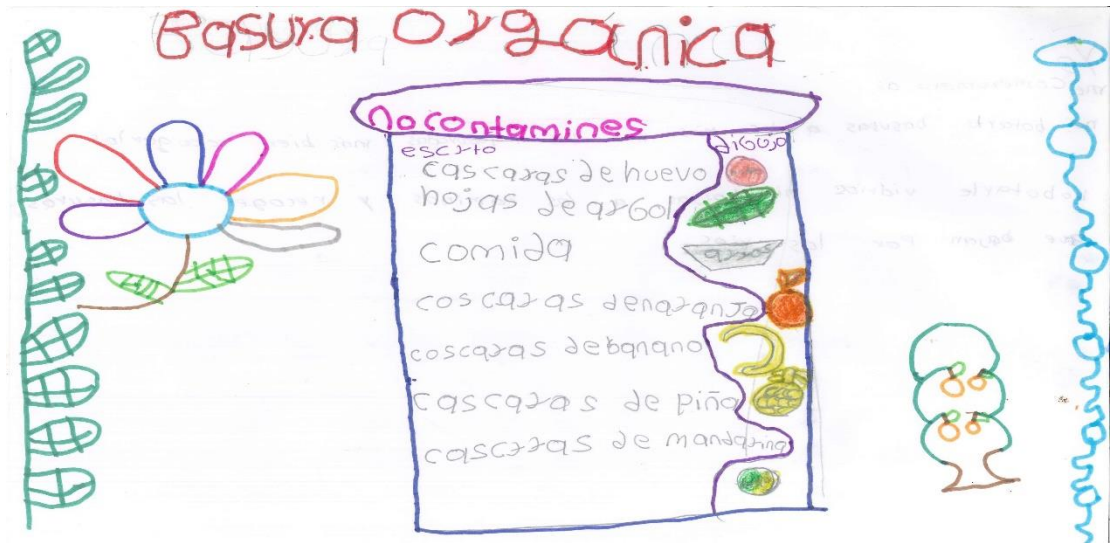 Basura Orgánica
No contamines
escrto dibujo
cascaras de huevo
hojas de arbol
comida
arroz
coscaras denaranja
coscaras debanano
cascaras de piña
cascaras de mandarina